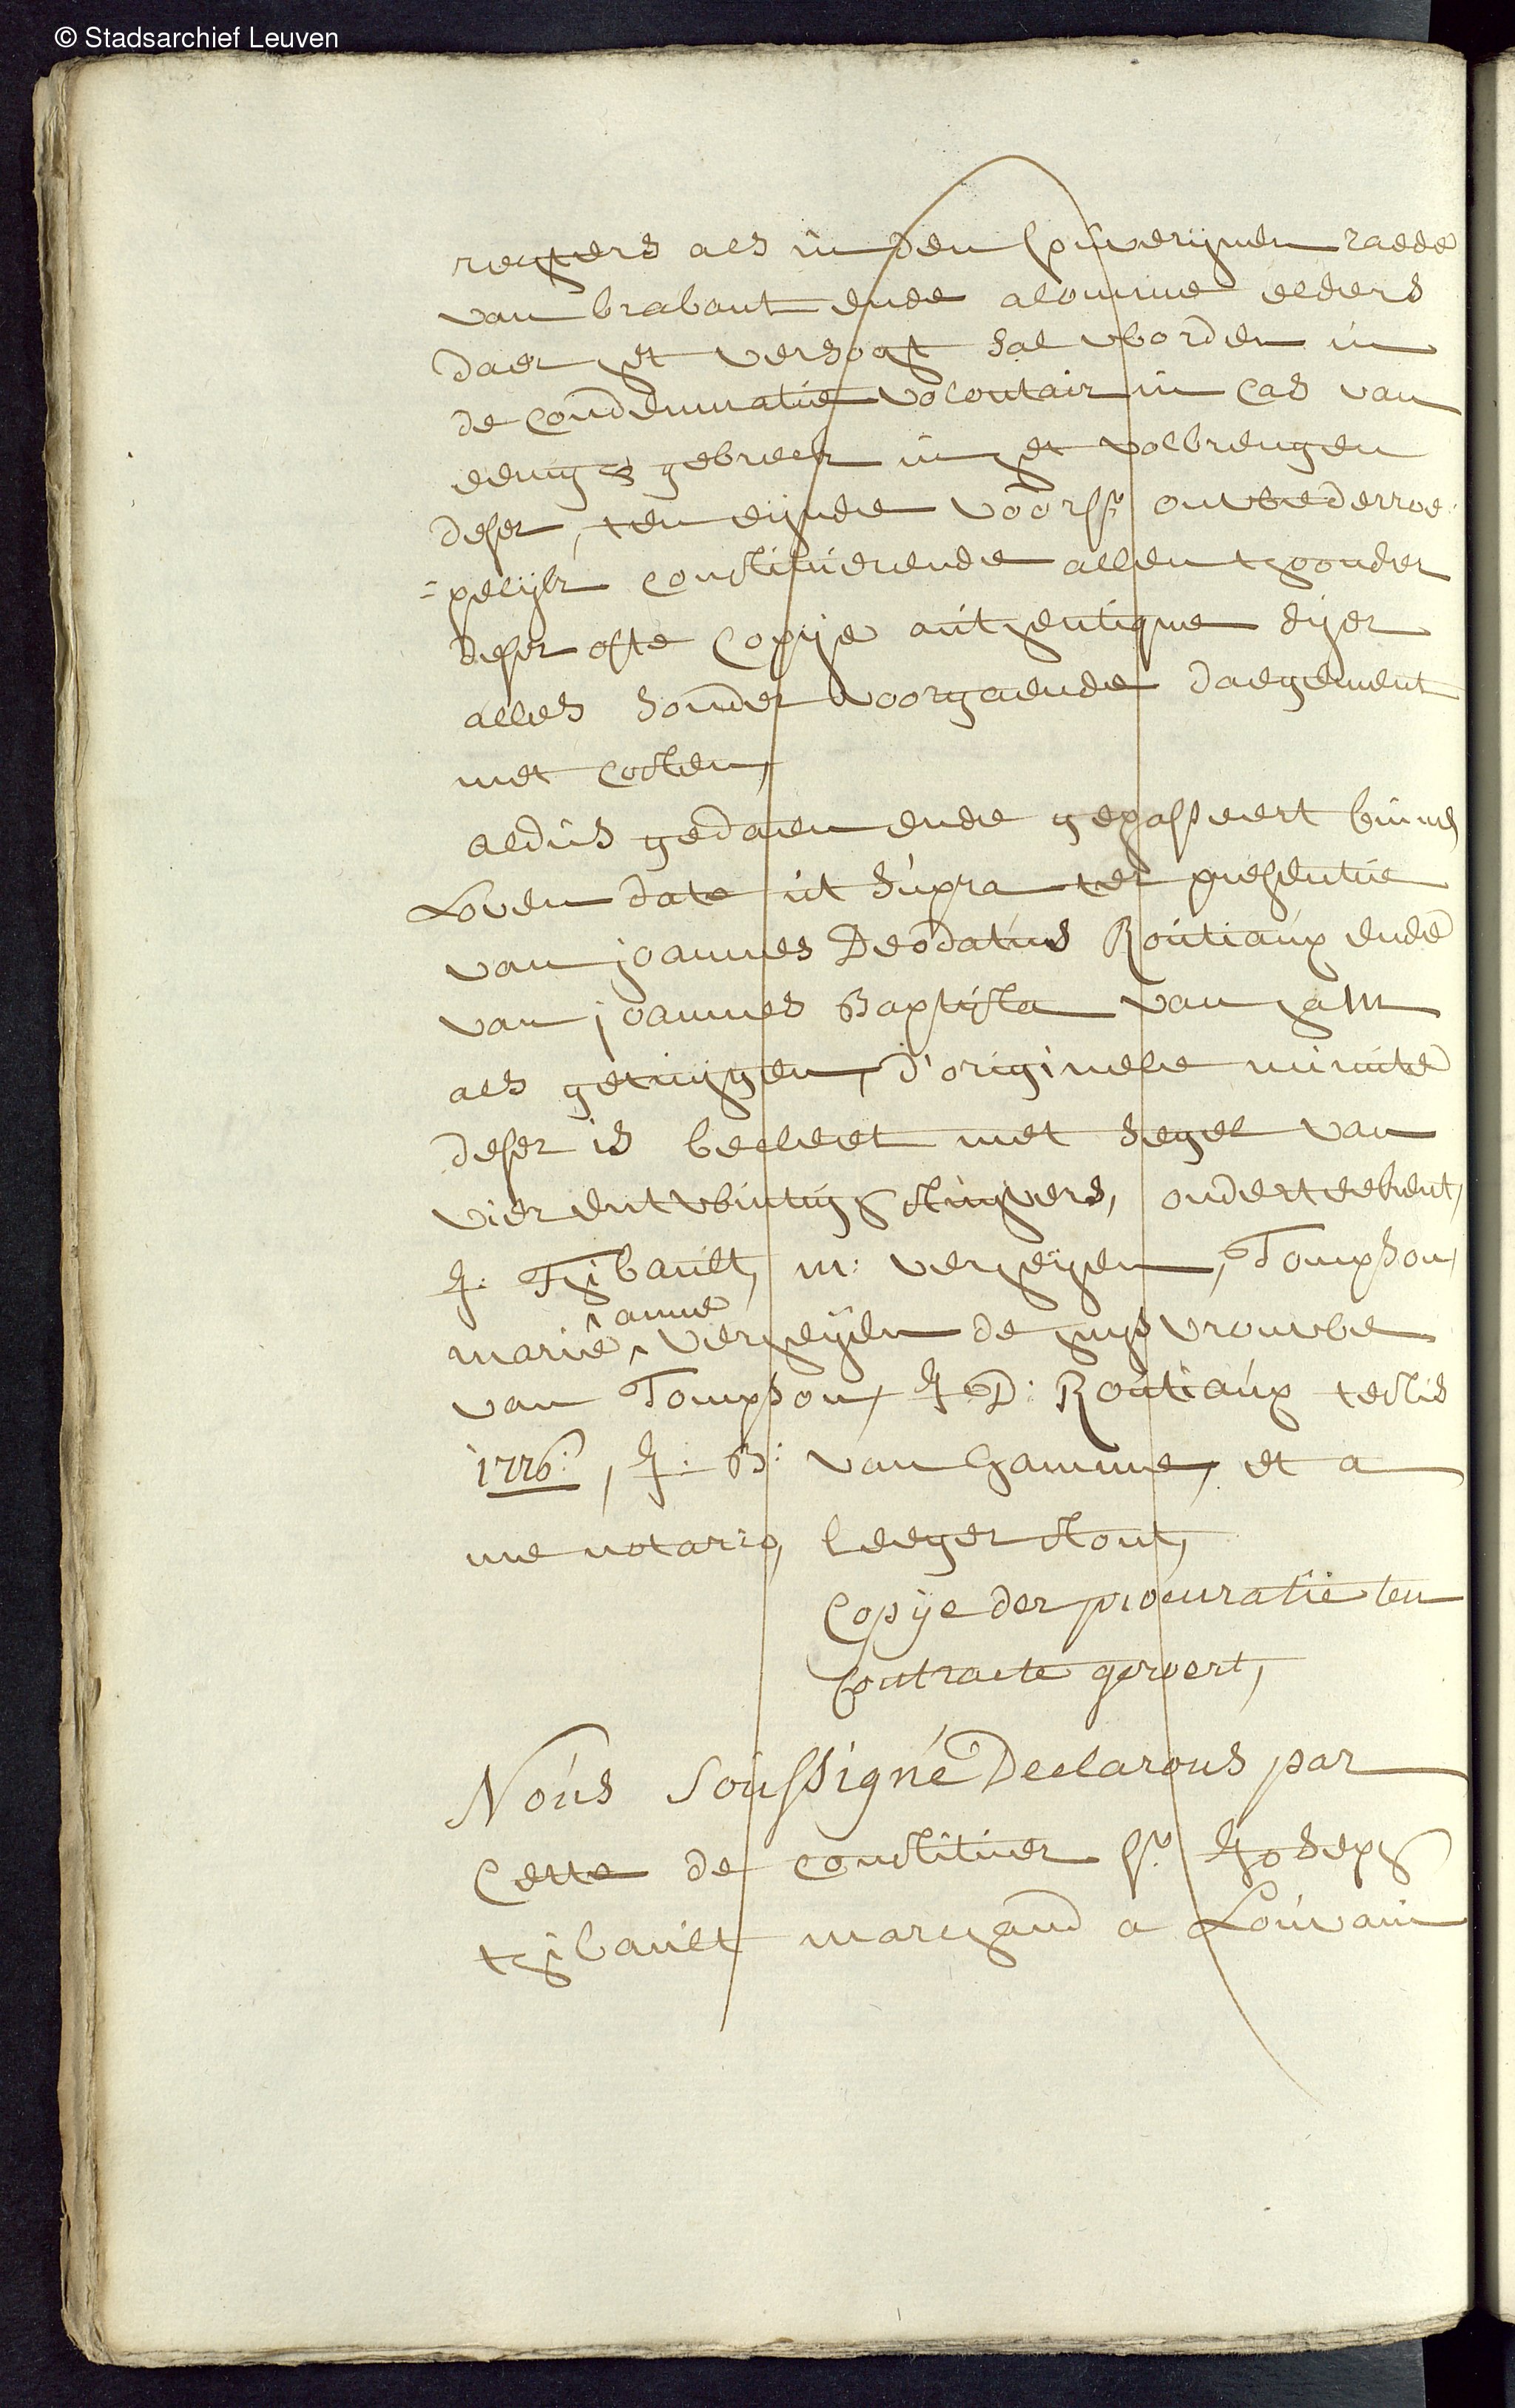 © Stadsarchief Leuven
reghters als in den souverijnen raede
van brabant ende alomme elders
daer het versoght sal worden in
de condemnatie volontair in cas van
eenigh gebreck in het volbrengen
deser, ten eijnde voors: onwederroe
=pelijck constituerende allen thoonder
deser ofte copije authentique dijer
alles sonder voorgaende daegement
met costen,
aldus gedaen ende gepasseert binnen
Loven date ut supra ter presentie
van joannes Deodatus Routiaux ende
van joannes Baptista van ham
als getuijgen, d'originele minute
deser is becleet met segel van
vierentwintigh stuijvers, onderteekent,
J: Thibault, m: verheijen, Tompson,
marie anne verheijen de huijsvrouwe
van Tompson, J: D: Routiaux testis
1726:, J: B: van hamme, et a
me notario, leegerstont,
Copije der procuratie ten
Contracte geroert,
Nous Soussigné Declarons par
Cette de constituer sr. Joseph
thibault marchand a Louvain